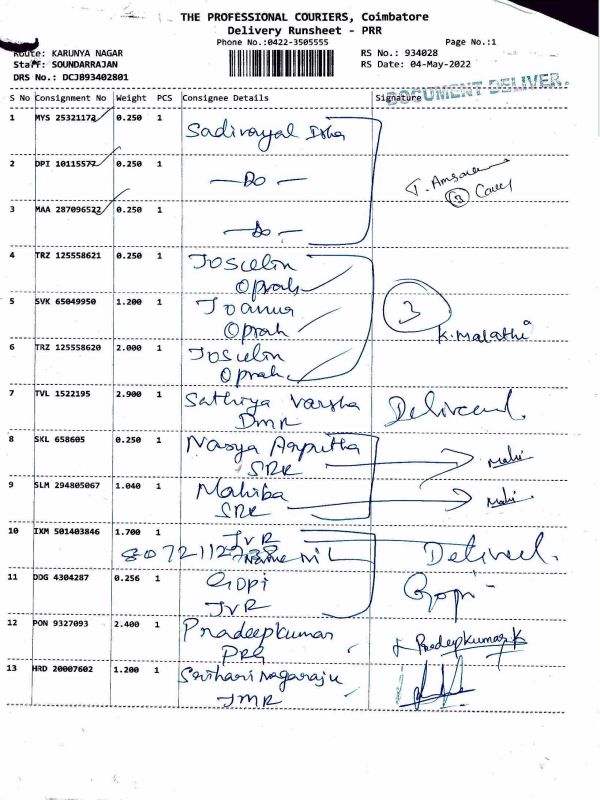 THE PROFESSIONAL COURIERS, Coimbatore
Delivery Runsheet - PRR
Phone No.:0422-3505555 Page No.:1
Route: KARUNYA NAGAR RS No.: 934028
Staff: SOUNDARRAJAN RS Date: 04-May-2022
DRS No.: DCJB93402801
DOCUMENT DELIVER.
S No Consignment No Weight PCS Consignee Details Signature
1 MYS 25321172 0.250 1 Sadivayal Isha
2 DPI 10115577 0.250 1 —Do—
3 MAA 287096522 0.250 1 —Do—
3
4 TRZ 125558621 0.250 1 Joscelin
Oprah
5 SVK 65049950 1.200 1 Joanna
Oprah
3
K. Malathi
6 TRZ 125558620 2.000 1 Joscelin
Oprah
7 TVL 1522195 2.900 1 Sathiya Varsha
DMR
Delivered.
8 SKL 658605 0.250 1 Nasya Arputha
SRR
Mahi
9 SLM 294805067 1.040 1 Mahiba
SRR
Mahi
10 IXM 501403846 1.700 1 JVR
Name Nil
Delivered.
11 DDG 4304287 0.256 1 Gopi
JVR
Gopi
12 PON 9327093 2.400 1 Pradeepkumar
PRR
Pradeepkumar K
13 HRD 20007602 1.200 1 Srihari Nagaraju
JMR